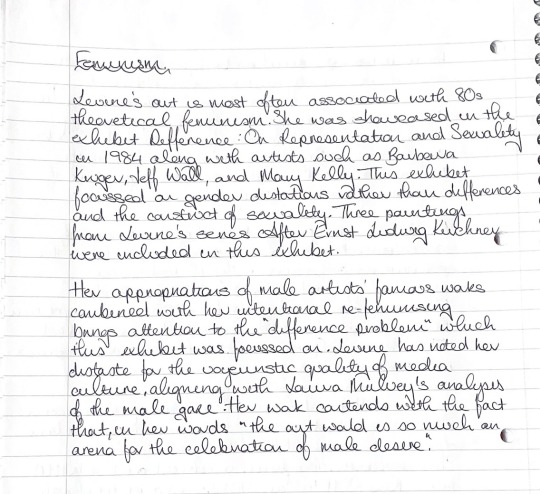 Feminism.
Levine's art is most often associated with 80s
theoretical feminism. She was showcased in the
exhibit Difference: On Representation and Sexuality
in 1984 along with artists such as Barbara
Kruger, Jeff Wall, and Mary Kelly. This exhibit
focussed on gender distations rather than differences
and the construct of sexuality. Three paintings
from Levine's series After Ernst Ludwig Kirchner
were included in this exhibit.
Her appropriations of male artists' famous works
combined with her intentional re-feminising
brings attention to the "difference problem" which
this exhibit was focussed on. Levine has noted her
distaste for the voyeuristic quality of media
culture, aligning with Laura Mulvey's analysis
of the male gaze. Her work contends with the fact
that, in her words "the art world is so much an
arena for the celebration of male desire".